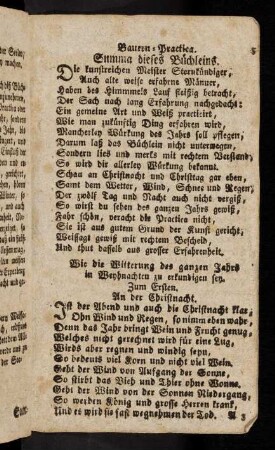 Bauern-Practica. 5
Summa dieses Büchleins.
Die kunstreichen Meister Sternkündiger,
Auch alte weise erfahrne Männer,
Haben des Himmels Lauf fleißig betracht,
Der Sach nach lang Erfahrung nachgedacht:
Ein gemeine Art und Weiß practicirt,
Wie man zukünftig Ding erfahren wird,
Mancherley Würkung des Jahrs soll pflegen,
Darum laß das Büchlein nicht unterwegen,
Sondern lies und merks mit rechtem Verstand,
So wird dir allerley Würkung bekannt.
Schau an Christnacht und Christtag gar eben,
Samt dem Wetter, Wind, Schnee und Regen,
Der zwölf Tag und Nacht auch nicht vergiß,
So wirst du sehen des ganzen Jahrs gewiß,
Jahr schön, veracht die Practica nicht,
Sie ist aus gutem Grund der Kunst gericht,
Weissagt gewiß mit rechtem Bescheid,
Und thut dasselb aus grosser Erfahrenheit.
Wie die Witterung des ganzen Jahrs
in Weyhnachten zu erkundigen sey.
Zum Ersten.
An der Christnacht.
Ist der Abend und auch die Christnacht klar,
Ohn Wind und Regen, so nimm eben wahr,
Denn das Jahr bringt Wein und Frucht genug,
Welches nicht gerechnet wird für eine Lug,
Wirds aber regnen und windig seyn,
So bedeuts viel Korn und nicht viel Wein.
Geht der Wind von Aufgang der Sonne,
So stirbt das Vieh und Thier ohne Wonne.
Geht der Wind von der Sonnen Niedergang,
So werden König und grosse Herren krank,
Und er wird sie fast wegnehmen der Tod. A 3